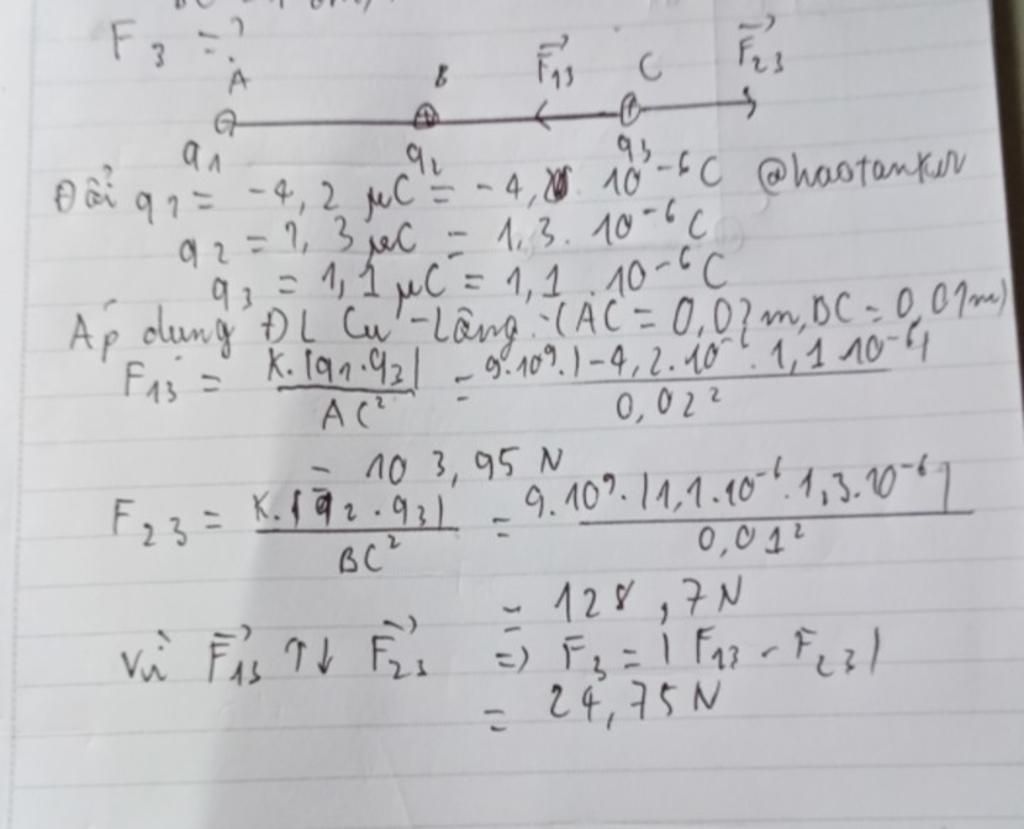 F₃ = ?
A B F₁₃ C F₂₃
q₁ q₂ q₃
Đổi q₁ = -4,2 μC = -4,2. 10⁻⁶C @haotanker
q₂ = 1,3 μC = 1,3. 10⁻⁶C
q₃ = 1,1 μC = 1,1. 10⁻⁶C
Áp dụng ĐL Cu-Lông: (AC = 0,02m, BC = 0,01m)
F₁₃ = K.|q₁.q₃| / AC² = 9.10⁹.|-4,2.10⁻⁶. 1,1 10⁻⁶| / 0,02²
= 103,95 N
F₂₃ = K.|q₂.q₃| / BC² = 9.10⁹.|1,1.10⁻⁶.1,3.10⁻⁶| / 0,01²
= 128,7N
Vì F₁₃ ↑↓ F₂₃ => F₃ = |F₁₃ - F₂₃|
= 24,75N